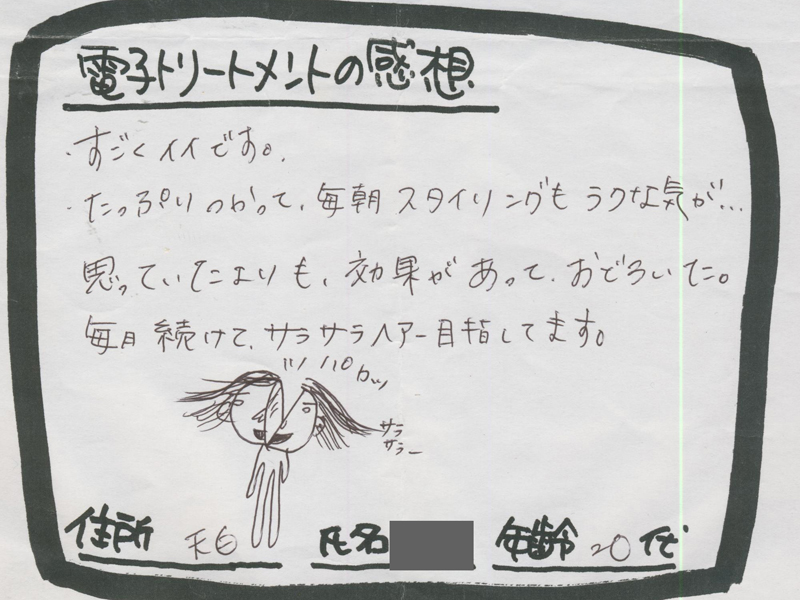 電子トリートメントの感想
・すごくイイです。
・たっぷりつかって、毎朝スタイリングもラクな気が…
思っていたよりも、効果があって、おどろいた。
毎月続けて、サラサラヘアー目指してます。
ツルパカッ
サラ
サラー
住所 天白 氏名 年齢 20代